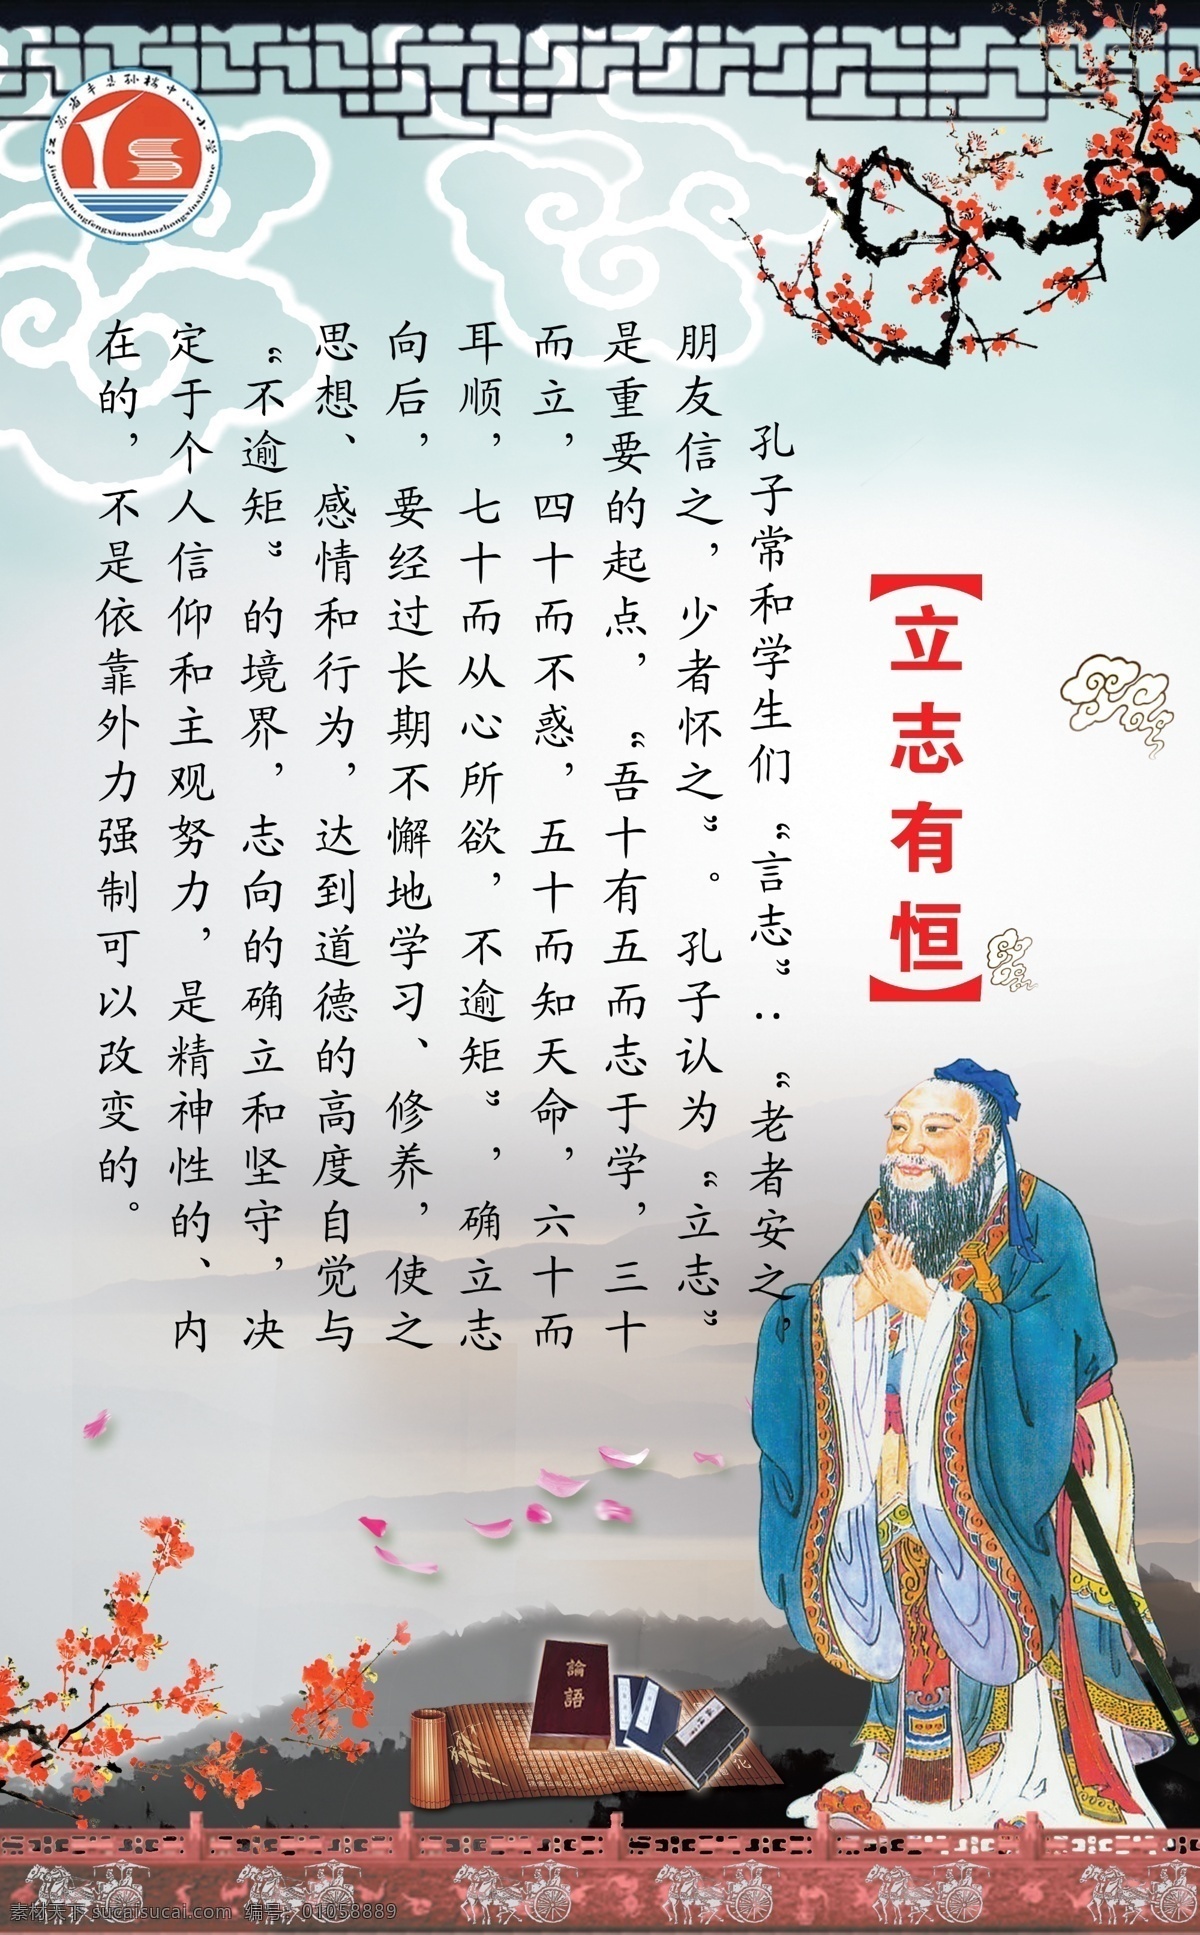 江苏省丰县孙楼中心小学
Jiangsushengfengxiansunlouzhongxinxiaoxue
【立志有恒】
孔子常和学生们“言志”：“老者安之，
朋友信之，少者怀之”。孔子认为“立志”
是重要的起点，“吾十有五而志于学，三十
而立，四十而不惑，五十而知天命，六十而
耳顺，七十而从心所欲，不逾矩”，确立志
向后，要经过长期不懈地学习、修养，使之
思想、感情和行为，达到道德的高度自觉与
“不逾矩”的境界，志向的确立和坚守，决
定于个人信仰和主观努力，是精神性的、内
在的，不是依靠外力强制可以改变的。
論語
素材天下 sucaisucai.com 编号：01058889